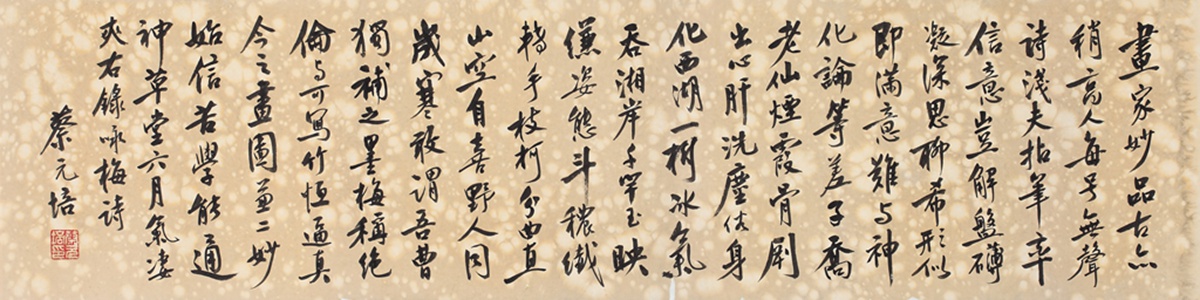 畫家妙品古亦
稍高人每号無聲
詩淺夫拈筆率
信意豈解盤礴
凝深思聊希形似
即滿意難与神
化論等差子喬
老仙煙霞骨
出心肝洗塵身
化西湖一樹冰氣
吞湘岸千竿玉映
縑姿態斗穠纖
轉手枝柯分曲直
山空自喜野人同
歲寒敢謂吾曹
獨補之墨梅稱絕
倫与可写竹恒逼真
今之畫圖兼二妙
始信苦學能通
神草堂六月氣凄
爽右錄咏梅詩
蔡元培